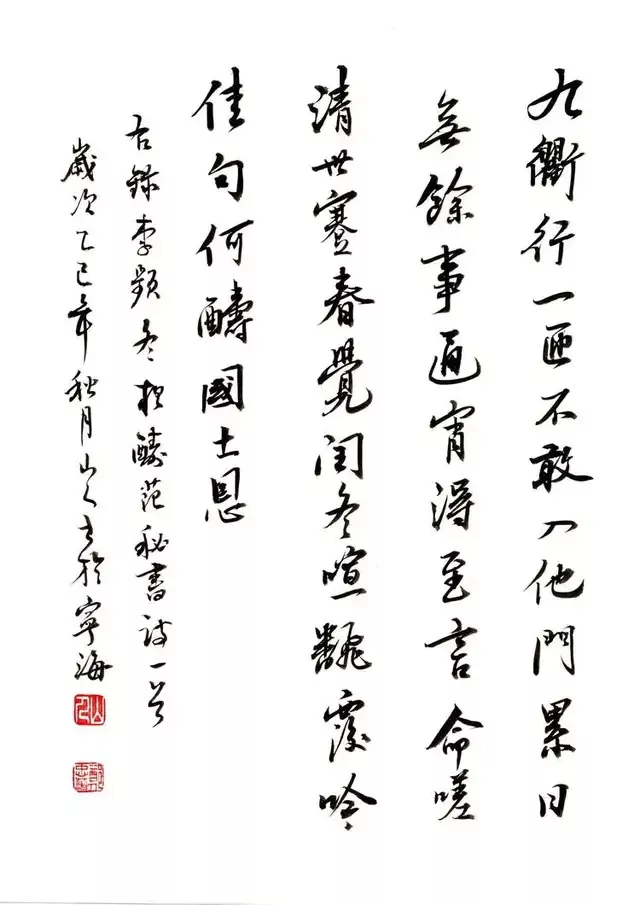 九衢行一匝不敢入他門累日
無餘事通宵得至言命嗟
清世蹇春覺閏冬暄飜覆吟
佳句何醻國士恩
右錄李頻冬夜醻范秘書詩一首
歲次乙巳年秋月山人書於寧海
山人